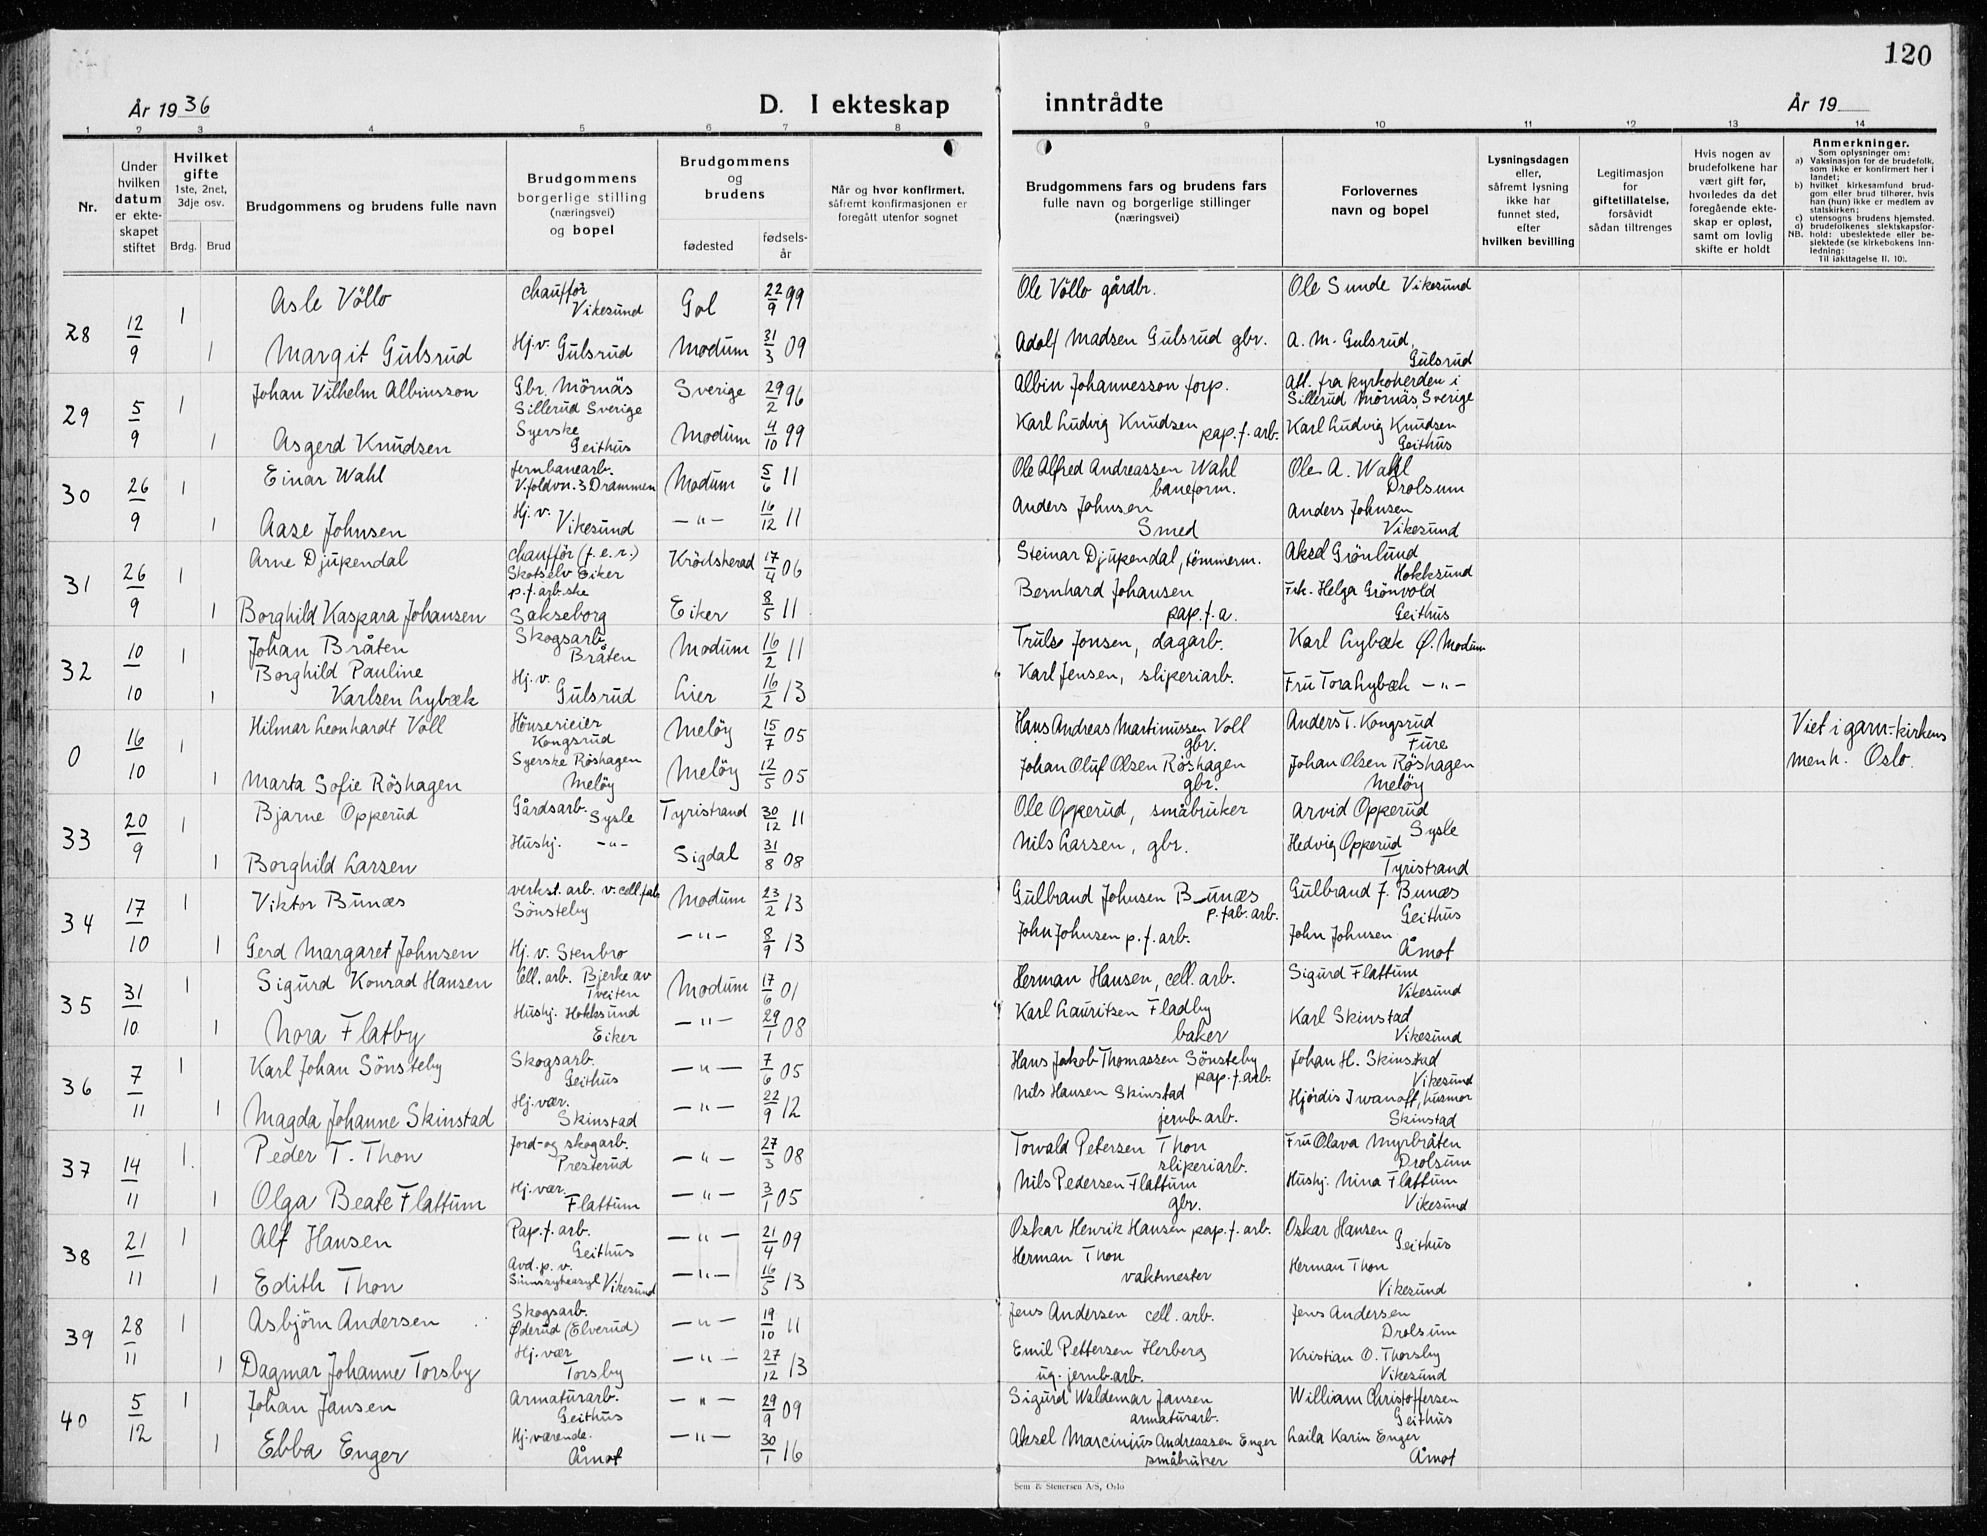 120
År 1936
D. I ekteskap inntrådte
År 19
1 2 3 4 5 6 7 8 9 10 11 12 13 14
Nr.
Under hvilken datum er ekteskapet stiftet
Hvilket gifte 1ste, 2net, 3dje osv.
Brdg. Brud
Brudgommens og brudens fulle navn
Brudgommens borgerlige stilling (næringsvei) og bopel
Brudgommens og brudens
fødested fødselsår
Når og hvor konfirmert, såfremt konfirmasjonen er foregått utenfor sognet
Brudgommens fars og brudens fars fulle navn og borgerlige stillinger (næringsvei)
Forlovernes navn og bopel
Lysningsdagen eller, såfremt lysning ikke har funnet sted, efter hvilken bevilling
Legitimasjon for giftetillatelse, forsåvidt sådan tiltrenges
Hvis nogen av brudefolkene har vært gift før, hvorledes da det foregående ekteskap er opløst, samt om lovlig skifte er holdt
Anmerkninger.
Som oplysninger om:
a) Vaksinasjon for de brudefolk, som ikke er konfirmert her i landet;
b) hvilket kirkesamfund brudgom eller brud tilhører, hvis han (hun) ikke er medlem av statskirken;
c) utensogns brudens hjemsted.
d) brudefolkenes slektskapsforhold: ubeslektede eller beslektede (se kirkebokens innledning:
NB.
Til iakttagelse II. 10).
28 12/9 1 Asle Völlo chauffør Vikesund Gol 22/9 99 Ole Völlo gårdbr. Ole Sunde Vikesund
1 Margit Gulsrud Hj.v. Gulsrud Modum 31/3 09 Adolf Madsen Gulsrud gbr. A. M. Gulsrud, Gulsrud
29 5/9 1 Johan Vilhelm Albinsson Gbr. Mörnäs Sillerud Sverige Sverige 29/2 96 Albin Johannesson torp. Att. fra kyrkoherden i Sillerud Mörnäs, Sverige
1 Asgerd Knudsen Syerske Geithus Modum 4/10 99 Karl Ludvig Knudsen pap.f.arb. Karl Ludvig Knudsen Geithus
30 26/9 1 Einar Wahl jernbanearb. V.foldvn. 3 Drammen Modum 5/6 11 Ole Alfred Andreassen Wahl baneform. Ole A. Wahl Drolsum
1 Aase Johnsen Hj.v. Vikesund —"— 16/12 11 Anders Johnsen Smed Anders Johnsen Vikesund
31 26/9 1 Arne Djupendal chauffør (f.e.r.) Skotselv Eiker Krödsherad 17/4 06 Steinar Djupendal, tömmerm. Aksel Grönlund Hokksund
1 Borghild Kaspara Johansen p.f.arb.ske Sakseborg Eiker 8/5 11 Bernhard Johansen pap.f.a. Frk. Helga Grönvold Geithus
32 10/10 1 Johan Bråten Skogsarb. Bråten Modum 16/2 11 Truls Jonsen, dagarb. Karl Lybæk Ø. Modum
1 Borghild Pauline Karlsen Lybæk Hj.v. Gulsrud Lier 16/2 13 Karl Jensen, sliperiarb. Fru Tora Lybæk —"—
0 16/10 1 Hilmar Leonhardt Voll Hönserieier Kongsrud Melöy 15/7 05 Hans Andreas Martinussen Voll gbr. Anders T. Kongsrud Fure Viet i garn.-kirkens menh. Oslo.
1 Marta Sofie Röshagen Syerske Röshagen Melöy Melöy 12/5 05 Johan Oluf Olsen Röshagen gbr. Johan Olsen Röshagen Melöy
33 20/9 1 Bjarne Opperud Gårdsarb. Sysle Tyristrand 30/12 11 Ole Opperud, småbruker Arvid Opperud Sysle
1 Borghild Larsen Hushj. —"— Sigdal 31/8 08 Nils Larsen, gbr. Hedvig Opperud Tyristrand
34 17/10 1 Viktor Bunæs verkst.arb. v. cell.fab. Sönsteby Modum 23/2 13 Gulbrand Johnsen Bunæs p.fab.arb. Gulbrand J. Bunæs Geithus
1 Gerd Margaret Johnsen Hj.v. Stenbro —"— 8/9 13 John Johnsen p.f.arb. John Johnsen Åmot
35 31/10 1 Sigurd Konrad Hansen Cell.arb. Bjerke av Tveiten Modum 17/6 01 Herman Hansen, cell.arb. Sigurd Flattum Vikesund
1 Nora Flatby Hushj. Hokksund Eiker —"— 29/1 08 Karl Lauritsen Fladby baker Karl Skinstad Vikesund
36 7/11 1 Karl Johan Sönsteby Skogsarb. Geithus —"— 7/6 05 Hans Jakob Thomassen Sönsteby pap.f.arb. Johan H. Skinstad Vikesund
1 Magda Johanne Skinstad Hj.vær. Skinstad —"— 22/9 12 Nils Hansen Skinstad jernb.arb. Hjördis Iwanoff, husmor Skinstad
37 14/11 1. Peder T. Thon Jord- og skogarb. Presterud —"— 27/3 08 Torvald Petersen Thon sliperiarb. Fru Olava Myrbråten Drolsum
1 Olga Beate Flattum Hj.vær. Flattum —"— 3/1 05 Nils Pedersen Flattum gbr. Hushj. Nina Flattum Vikesund
38 21/11 1 Alf Hansen Pap.f.arb. Geithus —"— 21/4 09 Oskar Henrik Hansen pap.f.arb. Oskar Hansen Geithus
1 Edith Thon Avd.p.v. Sinnssykeasyl Vikesund —"— 16/5 13 Herman Thon vaktmester Herman Thon Vikesund
39 28/11 1 Asbjörn Andersen Skogsarb. Øderud (Elverud) —"— 19/10 11 Jens Andersen cell.arb. Jens Andersen Drolsum
1 Dagmar Johanne Torsby Hj.vær Torsby —"— 27/12 13 Emil Pettersen Herberg ug. jernb.arb. Kristian O. Thorsby Vikesund
40 5/12 1 Johan Jansen Armaturarb. Geithus —"— 29/9 09 Sigurd Waldemar Jansen armaturarb. William Christoffersen Geithus
1 Ebba Enger Hj.værende. Åmot —"— 30/1 16 Aksel Marcinius Andreassen Enger småbruker Laila Karin Enger Åmot
Sem & Stenersen A/S, Oslo